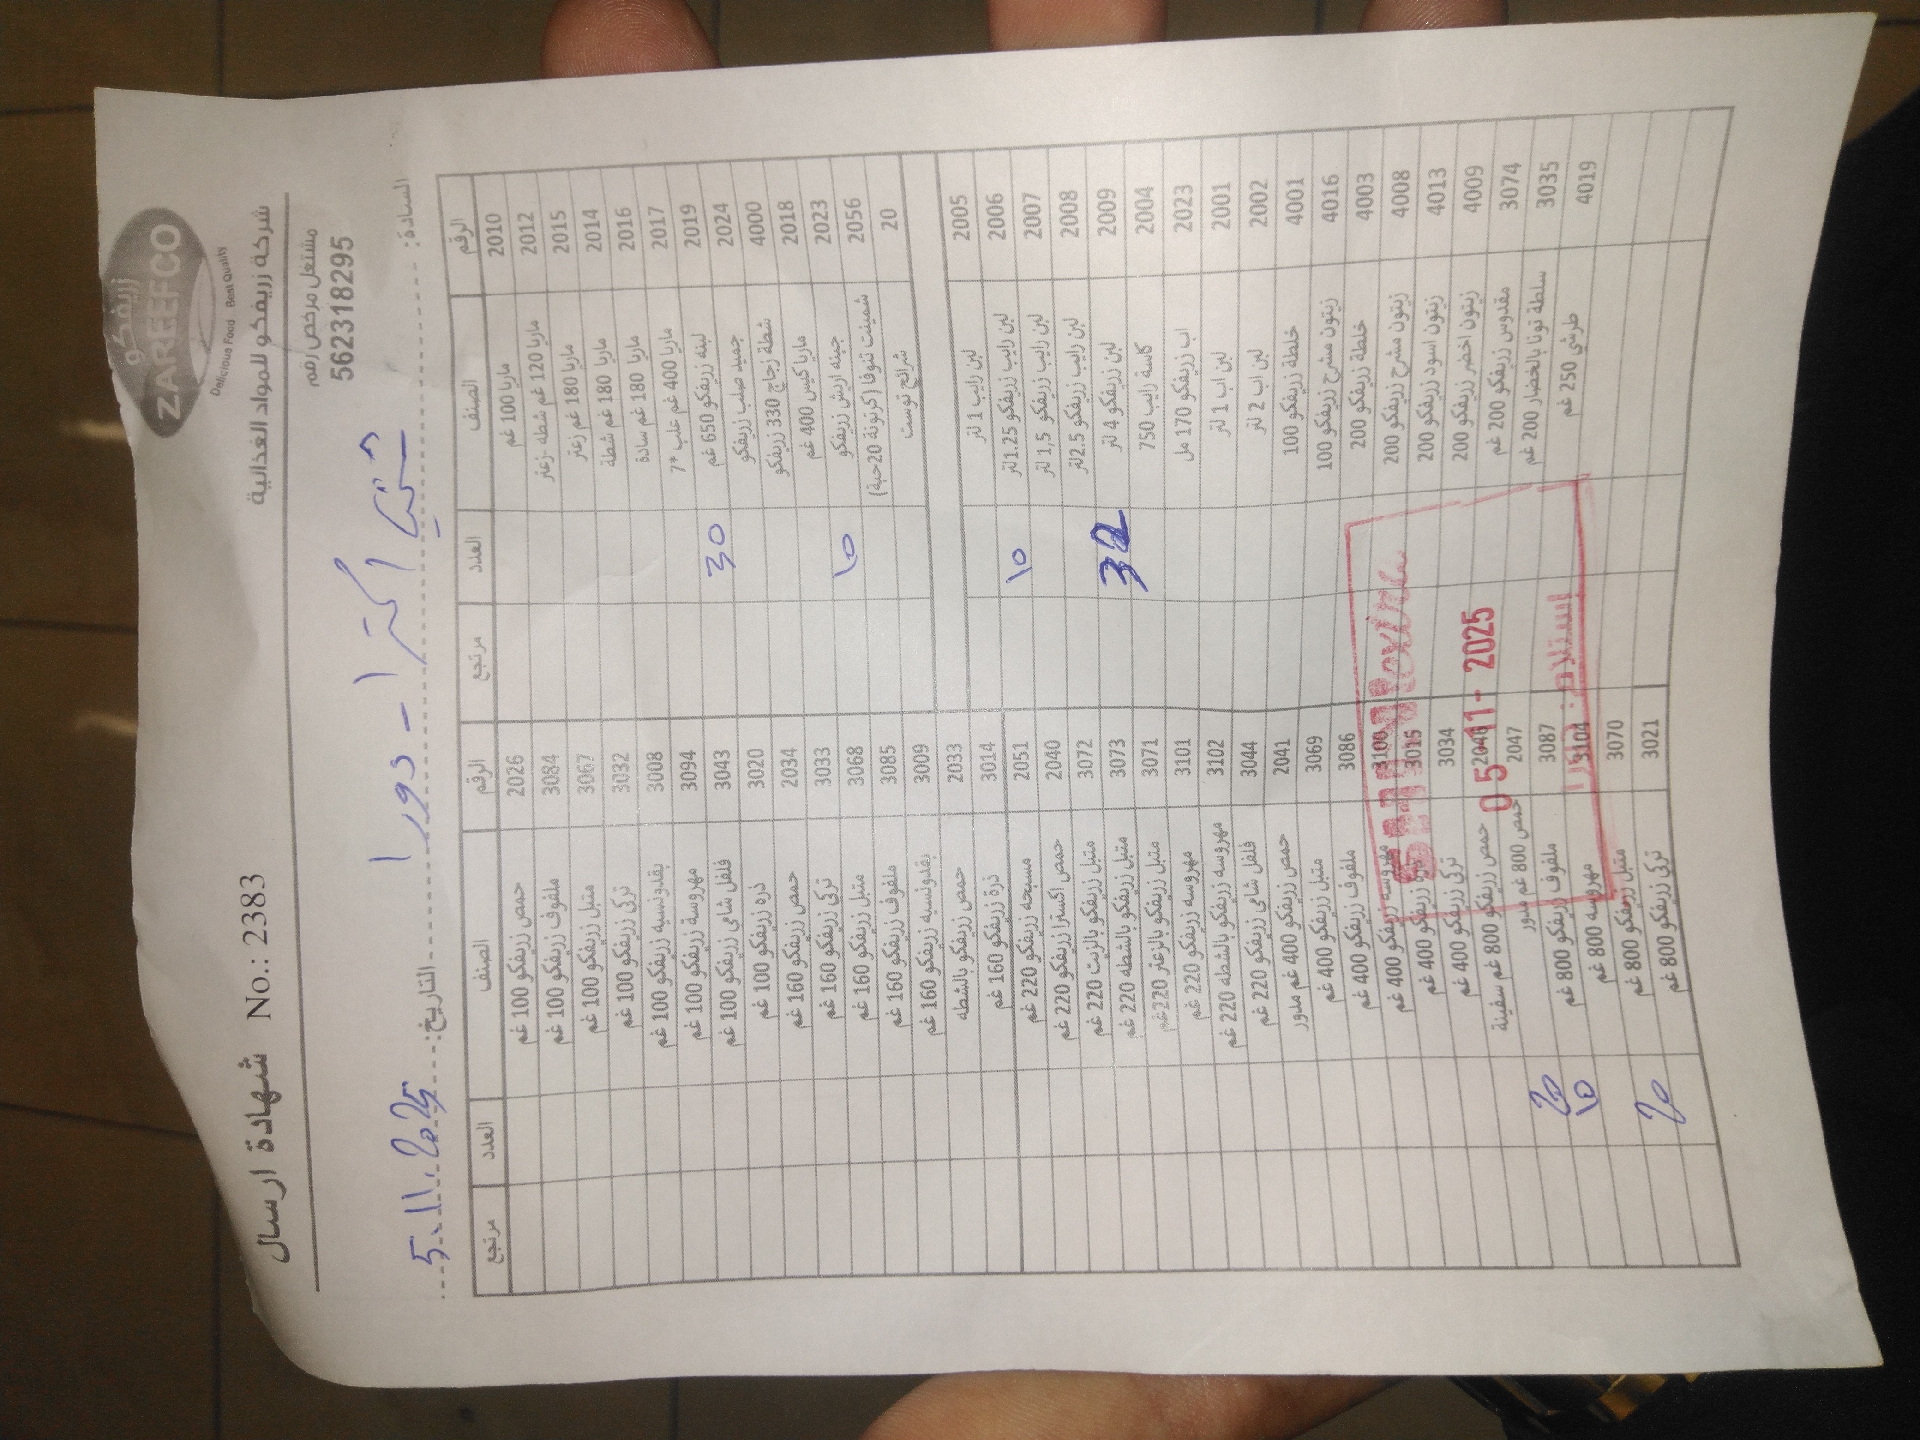 زريفكو
ZAREEFCO
Delicious Food Best Quality
شركة زريفكو للمواد الغذائية
شهادة ارسال No.: 2383
مشتغل مرخص رقم
562318295
السادة: اكسترا - دورا
التاريخ: 5.11.2025
الرقم الصنف العدد مرتجع الرقم الصنف العدد مرتجع
2010 ماريا 100 غم 2026 حمص زريفكو 100 غم
2012 ماريا 120 غم شطه -زعتر 3084 ملفوف زريفكو 100 غم
2015 ماريا 180 غم زعتر 3067 متبل زريفكو 100 غم
2014 ماريا 180 غم شطة 3032 تركي زريفكو 100 غم
2016 ماريا 180 غم سادة 3008 بقدونسيه زريفكو 100 غم
2017 ماريا 400 غم علب *7 3094 مهروسة زريفكو 100 غم
2019 لبنه زريفكو 650 غم 30 3043 فلفل شامي زريفكو 100 غم
2024 جميد صلب زريفكو 3020 ذره زريفكو 100 غم
4000 شطة زجاج 330 زريفكو 2034 حمص زريفكو 160 غم
2018 ماريا كيس 400 غم 3033 تركي زريفكو 160 غم
2023 جبنه اريش زريفكو 10 3068 متبل زريفكو 160 غم
2056 شمينت تنوفا (كرتونة 20حبة) 3085 ملفوف زريفكو 160 غم
20 شرائح توست 3009 بقدونسيه زريفكو 160 غم
2033 حمص زريفكو بالشطه
2005 لبن رايب 1 لتر 3014 ذرة زريفكو 160 غم
2006 لبن رايب زريفكو 1.25لتر 10 2051 مسبحه زريفكو 220 غم
2007 لبن رايب زريفكو 1,5 لتر 2040 حمص اكسترا زريفكو 220 غم
2008 لبن رايب زريفكو 2.5لتر 3072 متبل زريفكو بالزيت 220 غم
2009 لبن زريفكو 4 لتر 3073 متبل زريفكو بالشطه 220 غم
2004 كاسة رايب 750 3071 متبل زريفكو بالزعتر 220غم
2023 اب زريفكو 170 مل 3101 مهروسه زريفكو 220 غم
2001 لبن اب 1 لتر 3102 مهروسه زريفكو بالشطه 220 غم
2002 لبن اب 2 لتر 3044 فلفل شامي زريفكو 220 غم
4001 خلطة زريفكو 100 2041 حمص زريفكو 400 غم مدور
4016 زيتون مشرح زريفكو 100 3069 متبل زريفكو 400 غم
4003 خلطة زريفكو 200 3086 ملفوف زريفكو 400 غم
4008 زيتون مشرح زريفكو 200 3100 مهروسه زريفكو 400 غم
4013 زيتون اسود زريفكو 200 3015 زريفكو 400 غم
4009 زيتون اخضر زريفكو 200 3034 تركي زريفكو 400 غم
3074 مقدوس زريفكو 200 غم 2046 حمص زريفكو 800 غم سفينة
3035 سلطة تونا بالخضار 200 غم 2047 حمص 800 غم مدور
4019 طرشي 250 غم 3087 ملفوف زريفكو 800 غم 20
3104 مهروسه 800 غم 10
3070 متبل زريفكو 800 غم
3021 تركي زريفكو 800 غم 20
05 -11- 2025
استلام